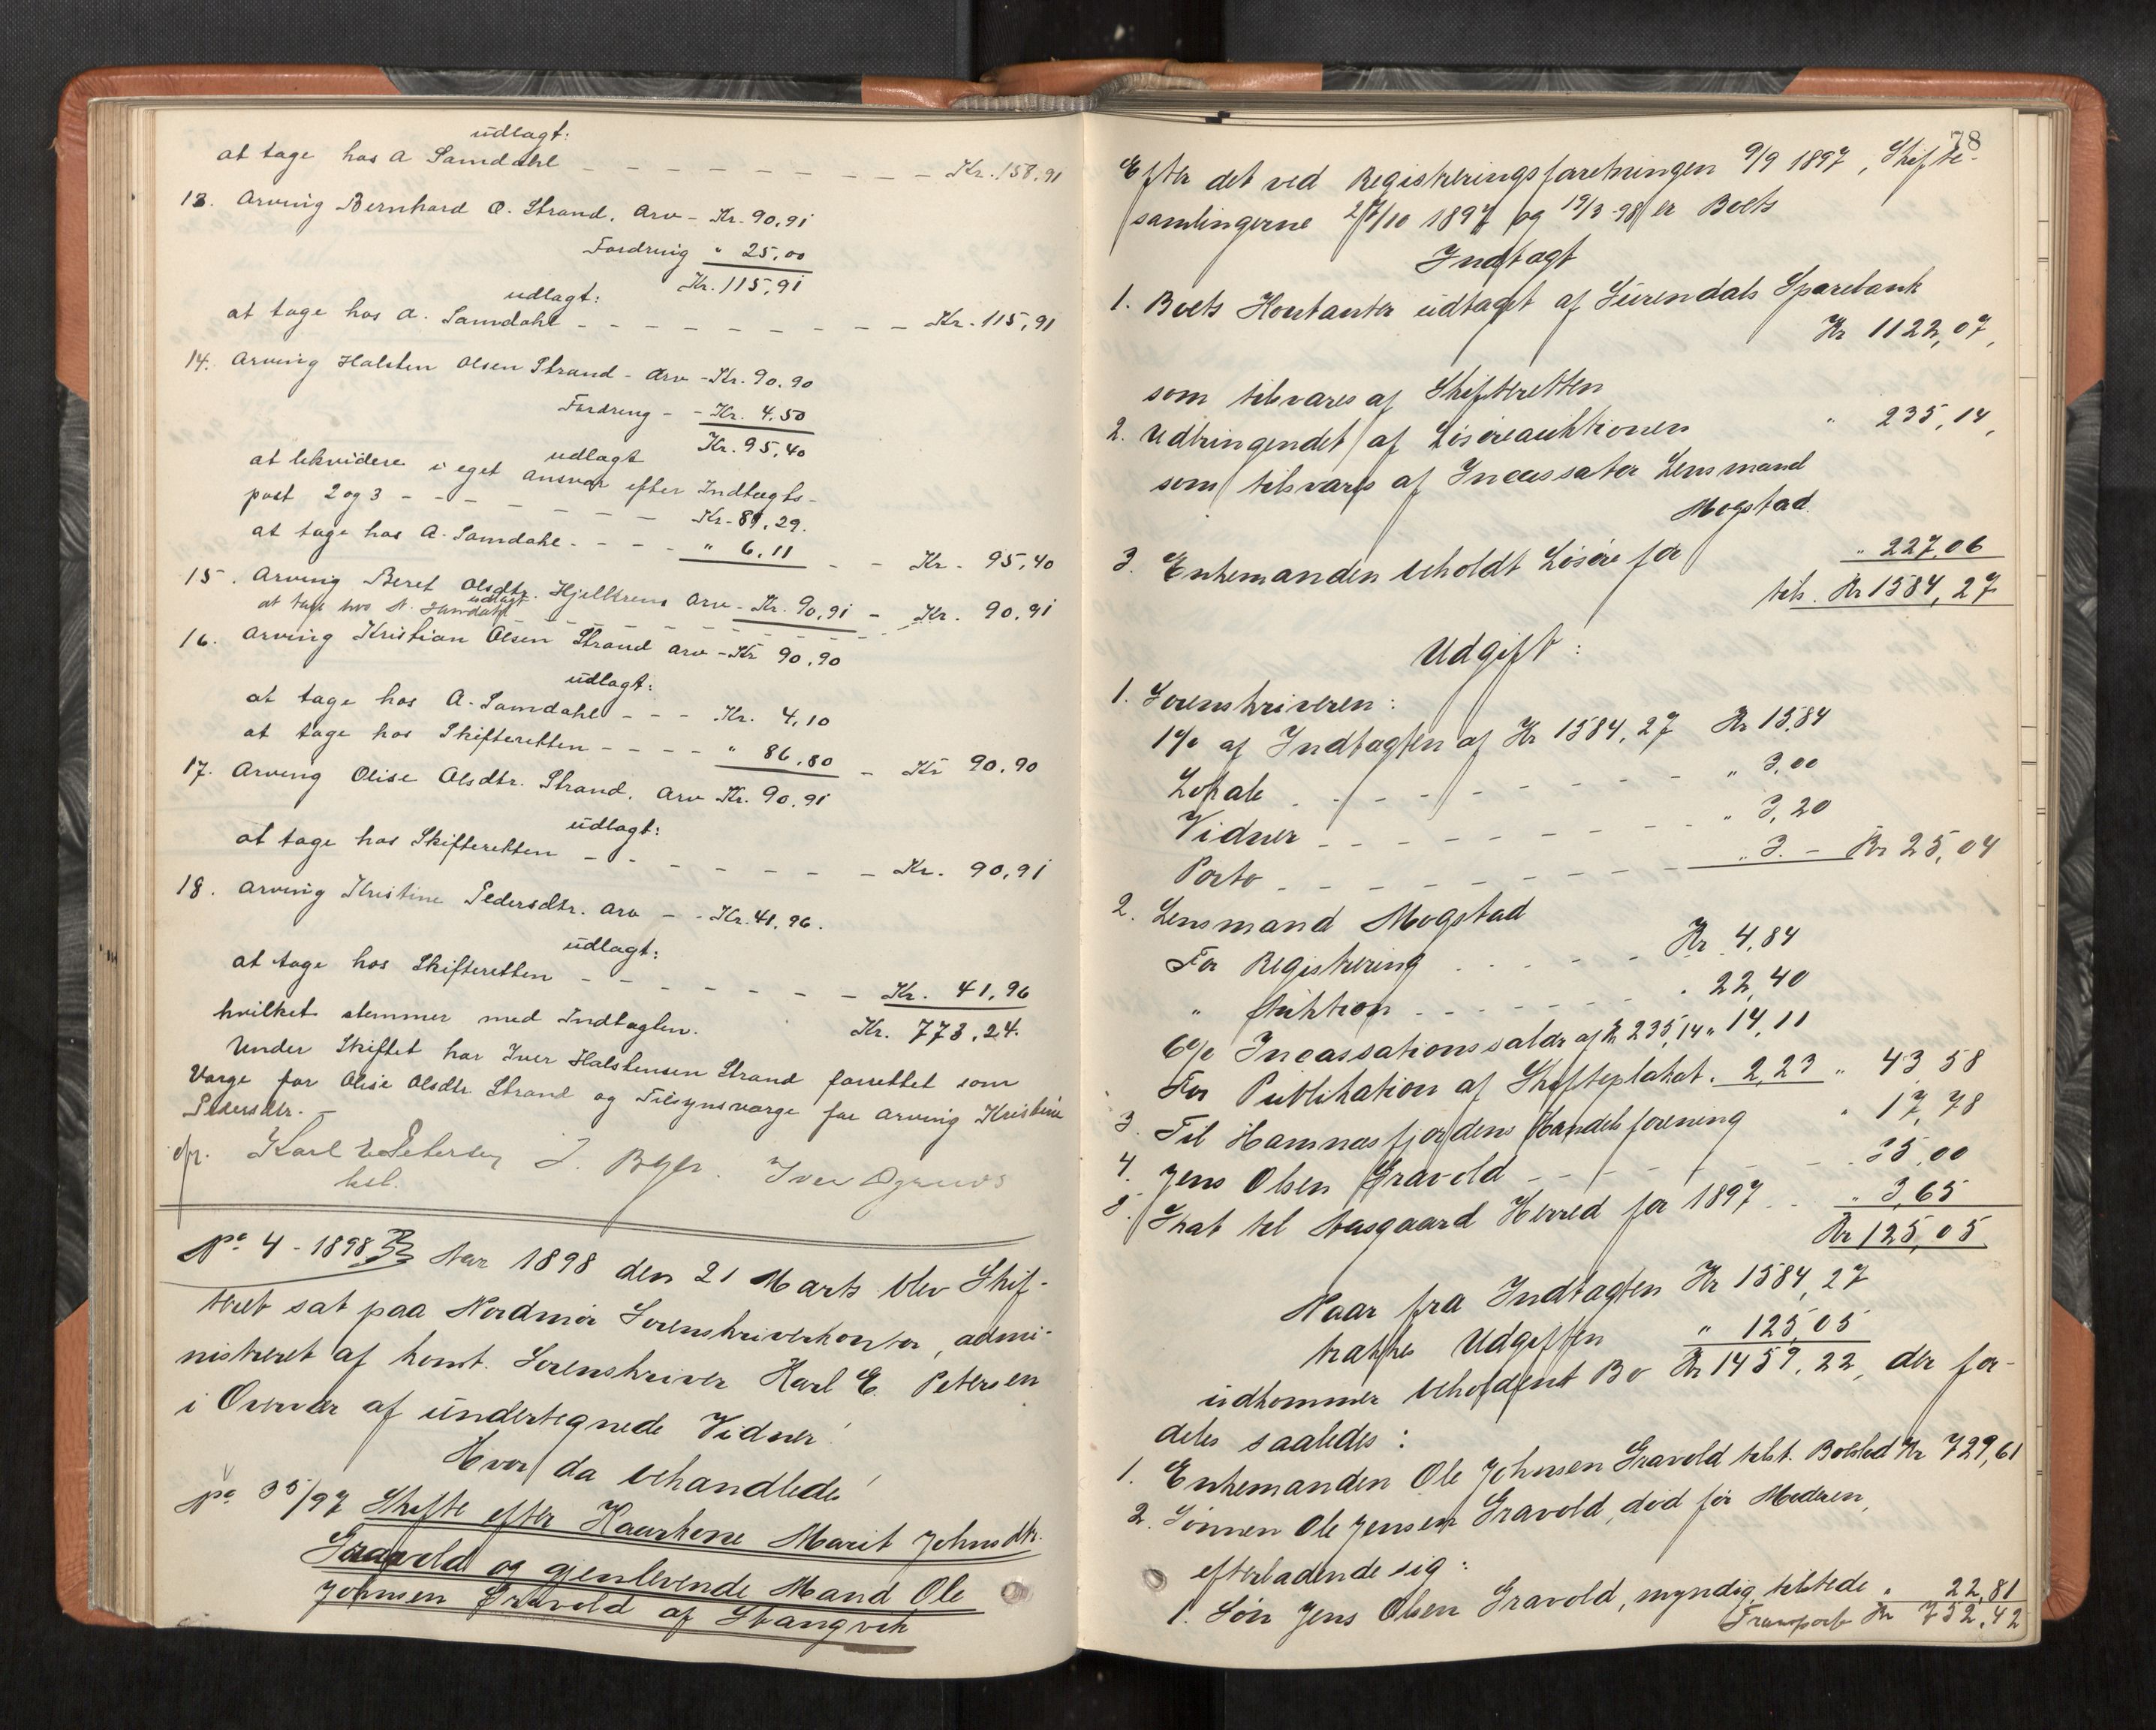 udlagt:
at tage hos A Samdahl - - - - - - - - - Kr. 158,91
13. Arving Bernhard O. Strand. Arv - Kr. 90,91
Fordring " 25,00
Kr. 115,91
udlagt:
at tage hos A. Samdahl - - - - - - - - - Kr. 115,91
14. Arving Halsten Olsen Strand - Arv - Kr. 90,90
Fordring - - Kr. 4,50
Kr. 95,40
udlagt
at likvidere i eget Ansvar efter Indtægts-
post 2 og 3 - - - - - - - Kr. 89,29.
at tage hos A. Samdahl - - - - " 6,11 - - Kr. 95,40
15. Arving Beret Olsdtr. Hjellnes Arv - Kr. 90,91 - Kr. 90,91
udlagt
at tage hos A. Samdahl
16. Arving Kristian Olsen Strand Arv - Kr 90,90
udlagt:
at tage hos A. Samdahl - - - Kr. 4,10
at tage hos Skifteretten - - - - " 86,80 - Kr 90,90
17. Arving Olise Olsdtr. Strand. Arv Kr. 90,91
udlagt:
at tage hos Skifteretten - - - - - - - Kr. 90,91
18. Arving Kristine Pedersdtr. Arv - - Kr. 41,96.
udlagt:
at tage hos Skifteretten - - - - - - - Kr. 41,96
hvilket stemmer med Indtægten. Kr. 773,24.
Under Skiftet har Iver Halstensen Strand forrettet som
Værge for Olise Olsdtr Strand og Tilsynsværge for Arving Kristine
Pedersdtr. -
Karl E Petersen J. Iver
kst.
No 4 - 1898 Aar 1898 den 21 Marts blev Skif-
teret sat paa Nordmør Sorenskriverkontor, admi-
nistreret af konst. Sorenskriver Karl E. Petersen
i Overvær af undertegnede Vidner!
Hvor da behandledes
No 35/97 Skifte efter Kaarkone Marit Johnsdtr.
Gravold og gjenlevende Mand Ole
Johnsen Gravold af Stangvik
78
Efter det ved Registreringsforretningen 9/9 1897, Skifte-
samlingerne 27/10 1897 og 19/3-98 er Boets
Indtægt
1. Boets Kontanter udtaget af Surendals Sparebank
Kr 1122,07,
som tilsvares af Skifteretten
2. Udbringendet af Løsøreauktionen " 235,14,
som tilsvares af Incassator Lensmand
Mogstad.
3. Enkemanden beholdt Løsøre for " 227,06
tils. Kr 1584,27
Udgift:
1. Sorenskriveren:
1% af Indtægten af Kr 1584,27 Kr 15,84
Lokale - - - - - - - - " 3,00
Vidner - - - - - - - - " 3,20
Porto - - - - - - - - " 3. - Kr 25,04
2. Lensmand Mogstad
For Registrering - - - - - Kr 4,84
" Auktion - - - - - - " 22,40
6% Incassationssalær af Kr 235,14 " 14,11
For Publikation af Skifteplakat. 2,23 " 43,58
3. Til Hamnesfjordens Handelsforening " 17,78
4. Jens Olsen Gravold - - - - - - - 35,00
5. Skat til Aasgaard Herred for 1897 - - " 3,65
Kr 125,05
Naar fra Indtægten Kr 1584,27
trækkes Udgiften " 125,05
udkommer beholdent Bo Kr 1459,22, der for-
deles saaledes:
1. Enkemanden Ole Johnsen Gravold tilst. Boeslod Kr 729,61
2. Sønnen Ole Jensen Gravold, død før Moderen,
efterladende sig:
1. Søn Jens Olsen Gravold, myndig, tilstede " 22,81
Transport Kr 752,42